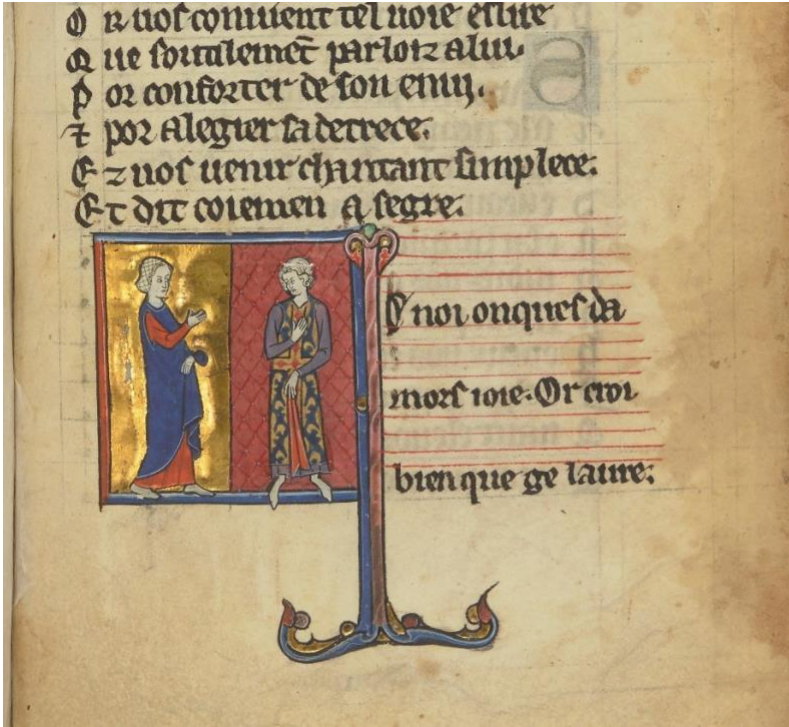 O r uos conuient tel uoie eslite
Q ue soutilement parloiz a lui.
P or conforter de son enui.
⁊ por alegier sa detrece.
E z uos uenir chantant simplece.
Et dit coiemen a segre.
I noi onques da
mors ioie. Or croi
bien que ge laure.